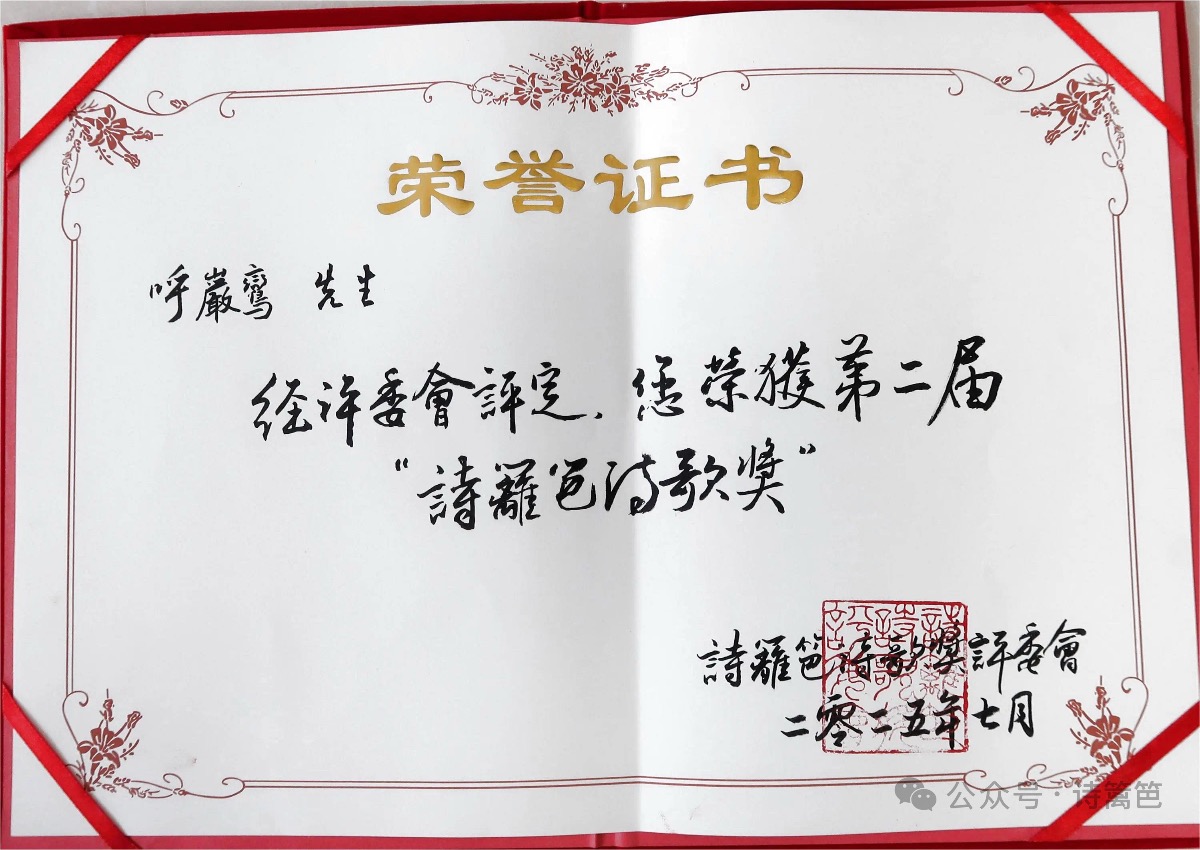 荣誉证书
呼巖鸞 先生
经评委會評定、您荣獲第二届
“詩籬笆诗歌獎”
詩籬笆诗歌獎評委會
二零二五年七月
公众号·诗篱笆